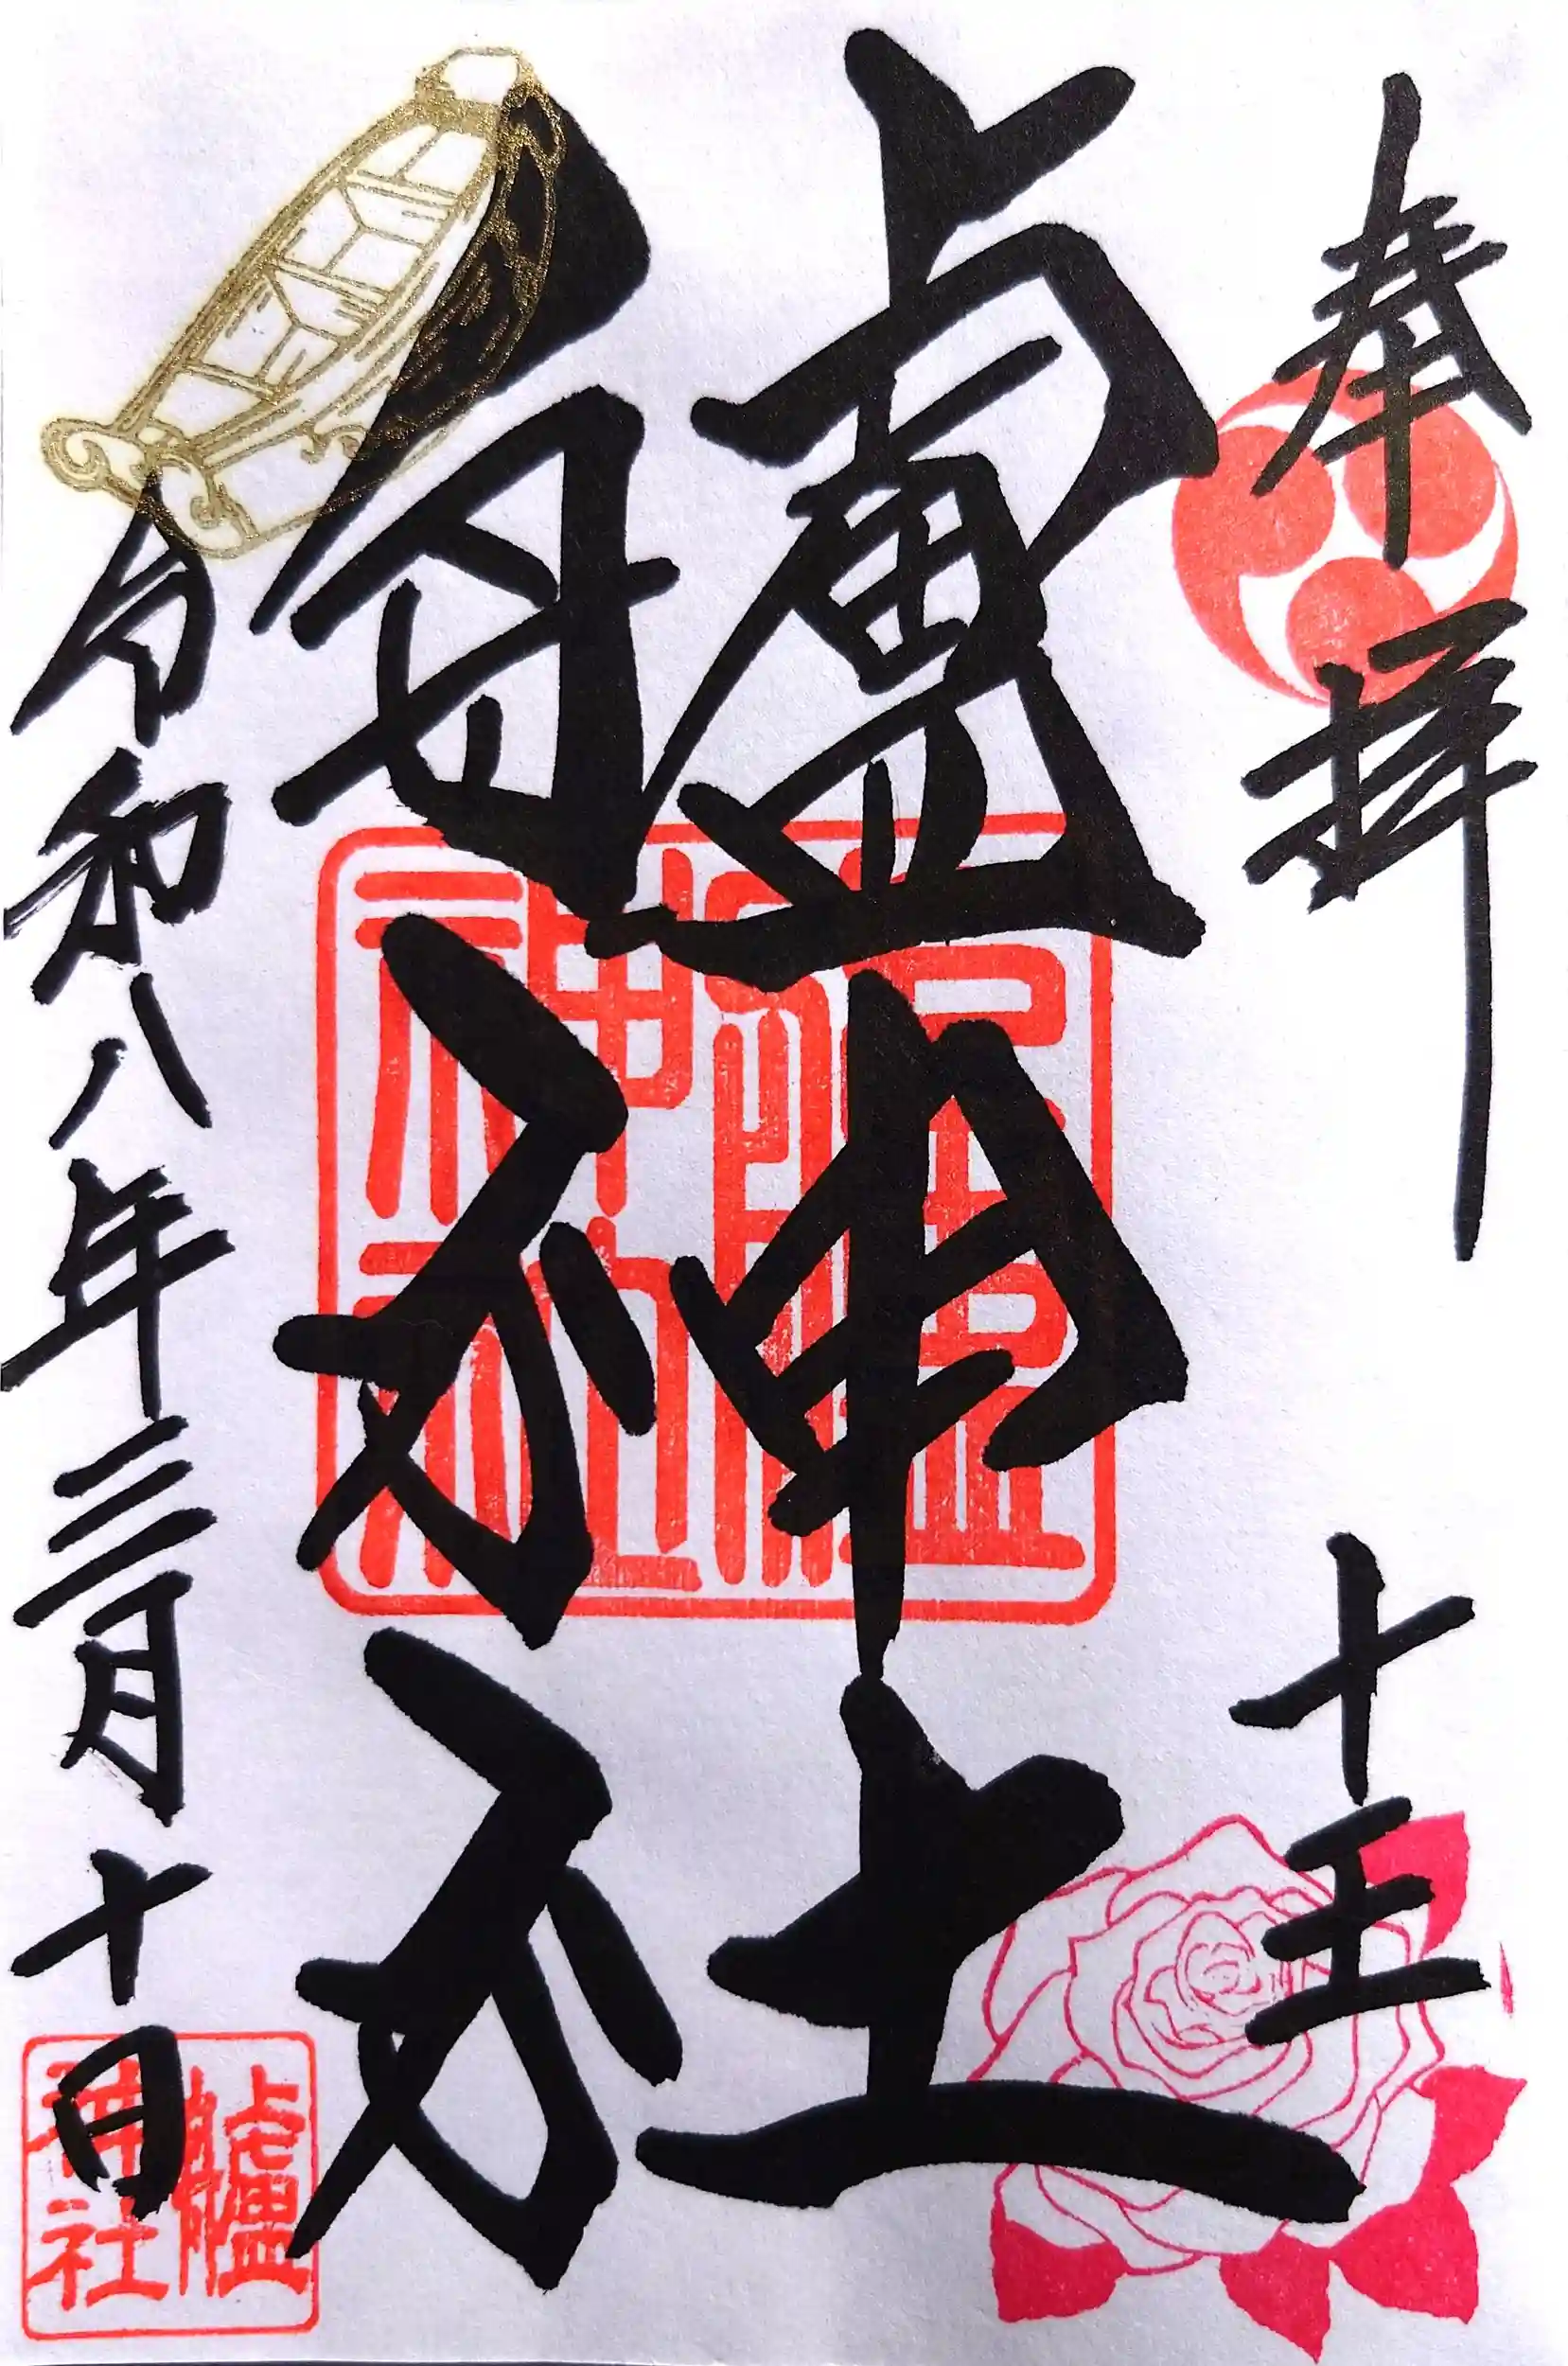 奉拝
十王
艫神社
令和八年三月十日
艫神社
艫神社